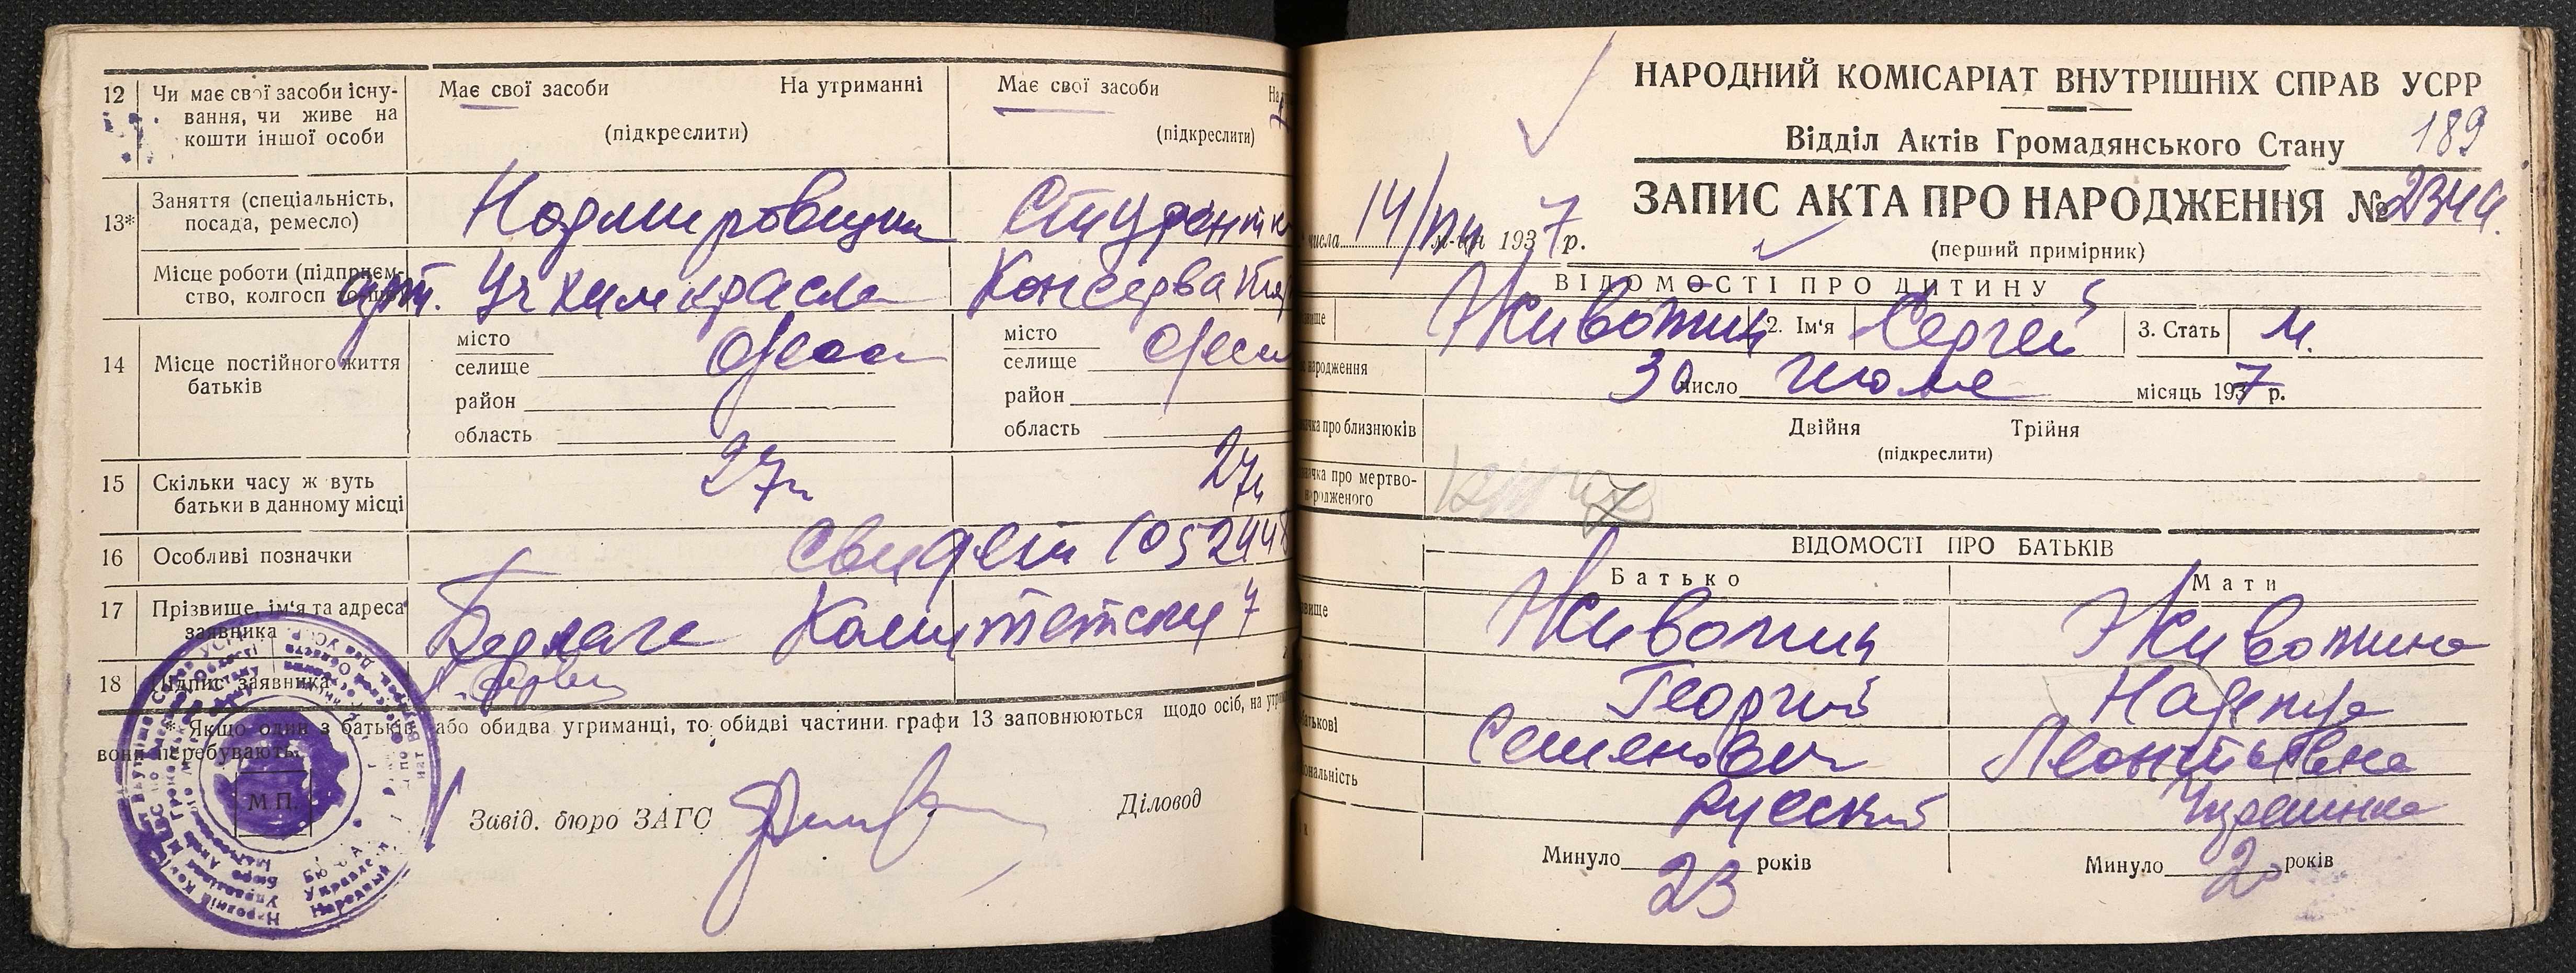 12 Чи має свої засоби існування, чи живе на кошти іншої особи
Має свої засоби На утриманні
(підкреслити)
Має свої засоби
(підкреслити)
13* Заняття (спеціальність, посада, ремесло)
Студентка
Місце роботи (підприємство, колгосп
арт. Учхимкрасна
14 Місце постійного життя батьків
місто
селище Одеса
район
область
місто
селище
район
область
15 Скільки часу ж вуть батьки в данному місці
16 Особливі позначки
17 Прізвище, ім'я та адреса заявника
Комитетская 7
18 Підпис заявника
* Якщо один з батьків або обидва утриманці, то обидві частини графи 13 заповнюються щодо осіб, на
вони перебувають.
М.П.
Завід. бюро ЗАГС
Діловод
НАРОДНИЙ КОМІСАРІАТ ВНУТРІШНІХ СПРАВ УСРР
Відділ Актів Громадянського Стану
189
ЗАПИС АКТА ПРО НАРОДЖЕННЯ № 2344
числа 14/ м-ця 1937 р.
(перший примірник)
ВІДОМОСТІ ПРО ДИТИНУ
Животин 2. Ім'я Сергей 3. Стать м.
народження 30 число Июля місяць 1937 р.
про близнюків
Двійня Трійня
(підкреслити)
про мертвонародженого
ВІДОМОСТІ ПРО БАТЬКІВ
Батько Мати
Животин Животина
Георгий Надежда
Семенович Леонтьевна
Русский
Минуло 23 років Минуло 20 років